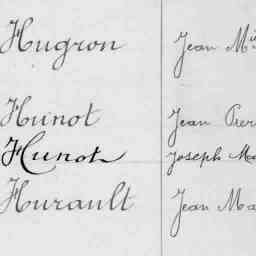 Hugron Jean Mi
Hunot Jean Pier
Hunot Joseph Ma
Hurault Jean Ma